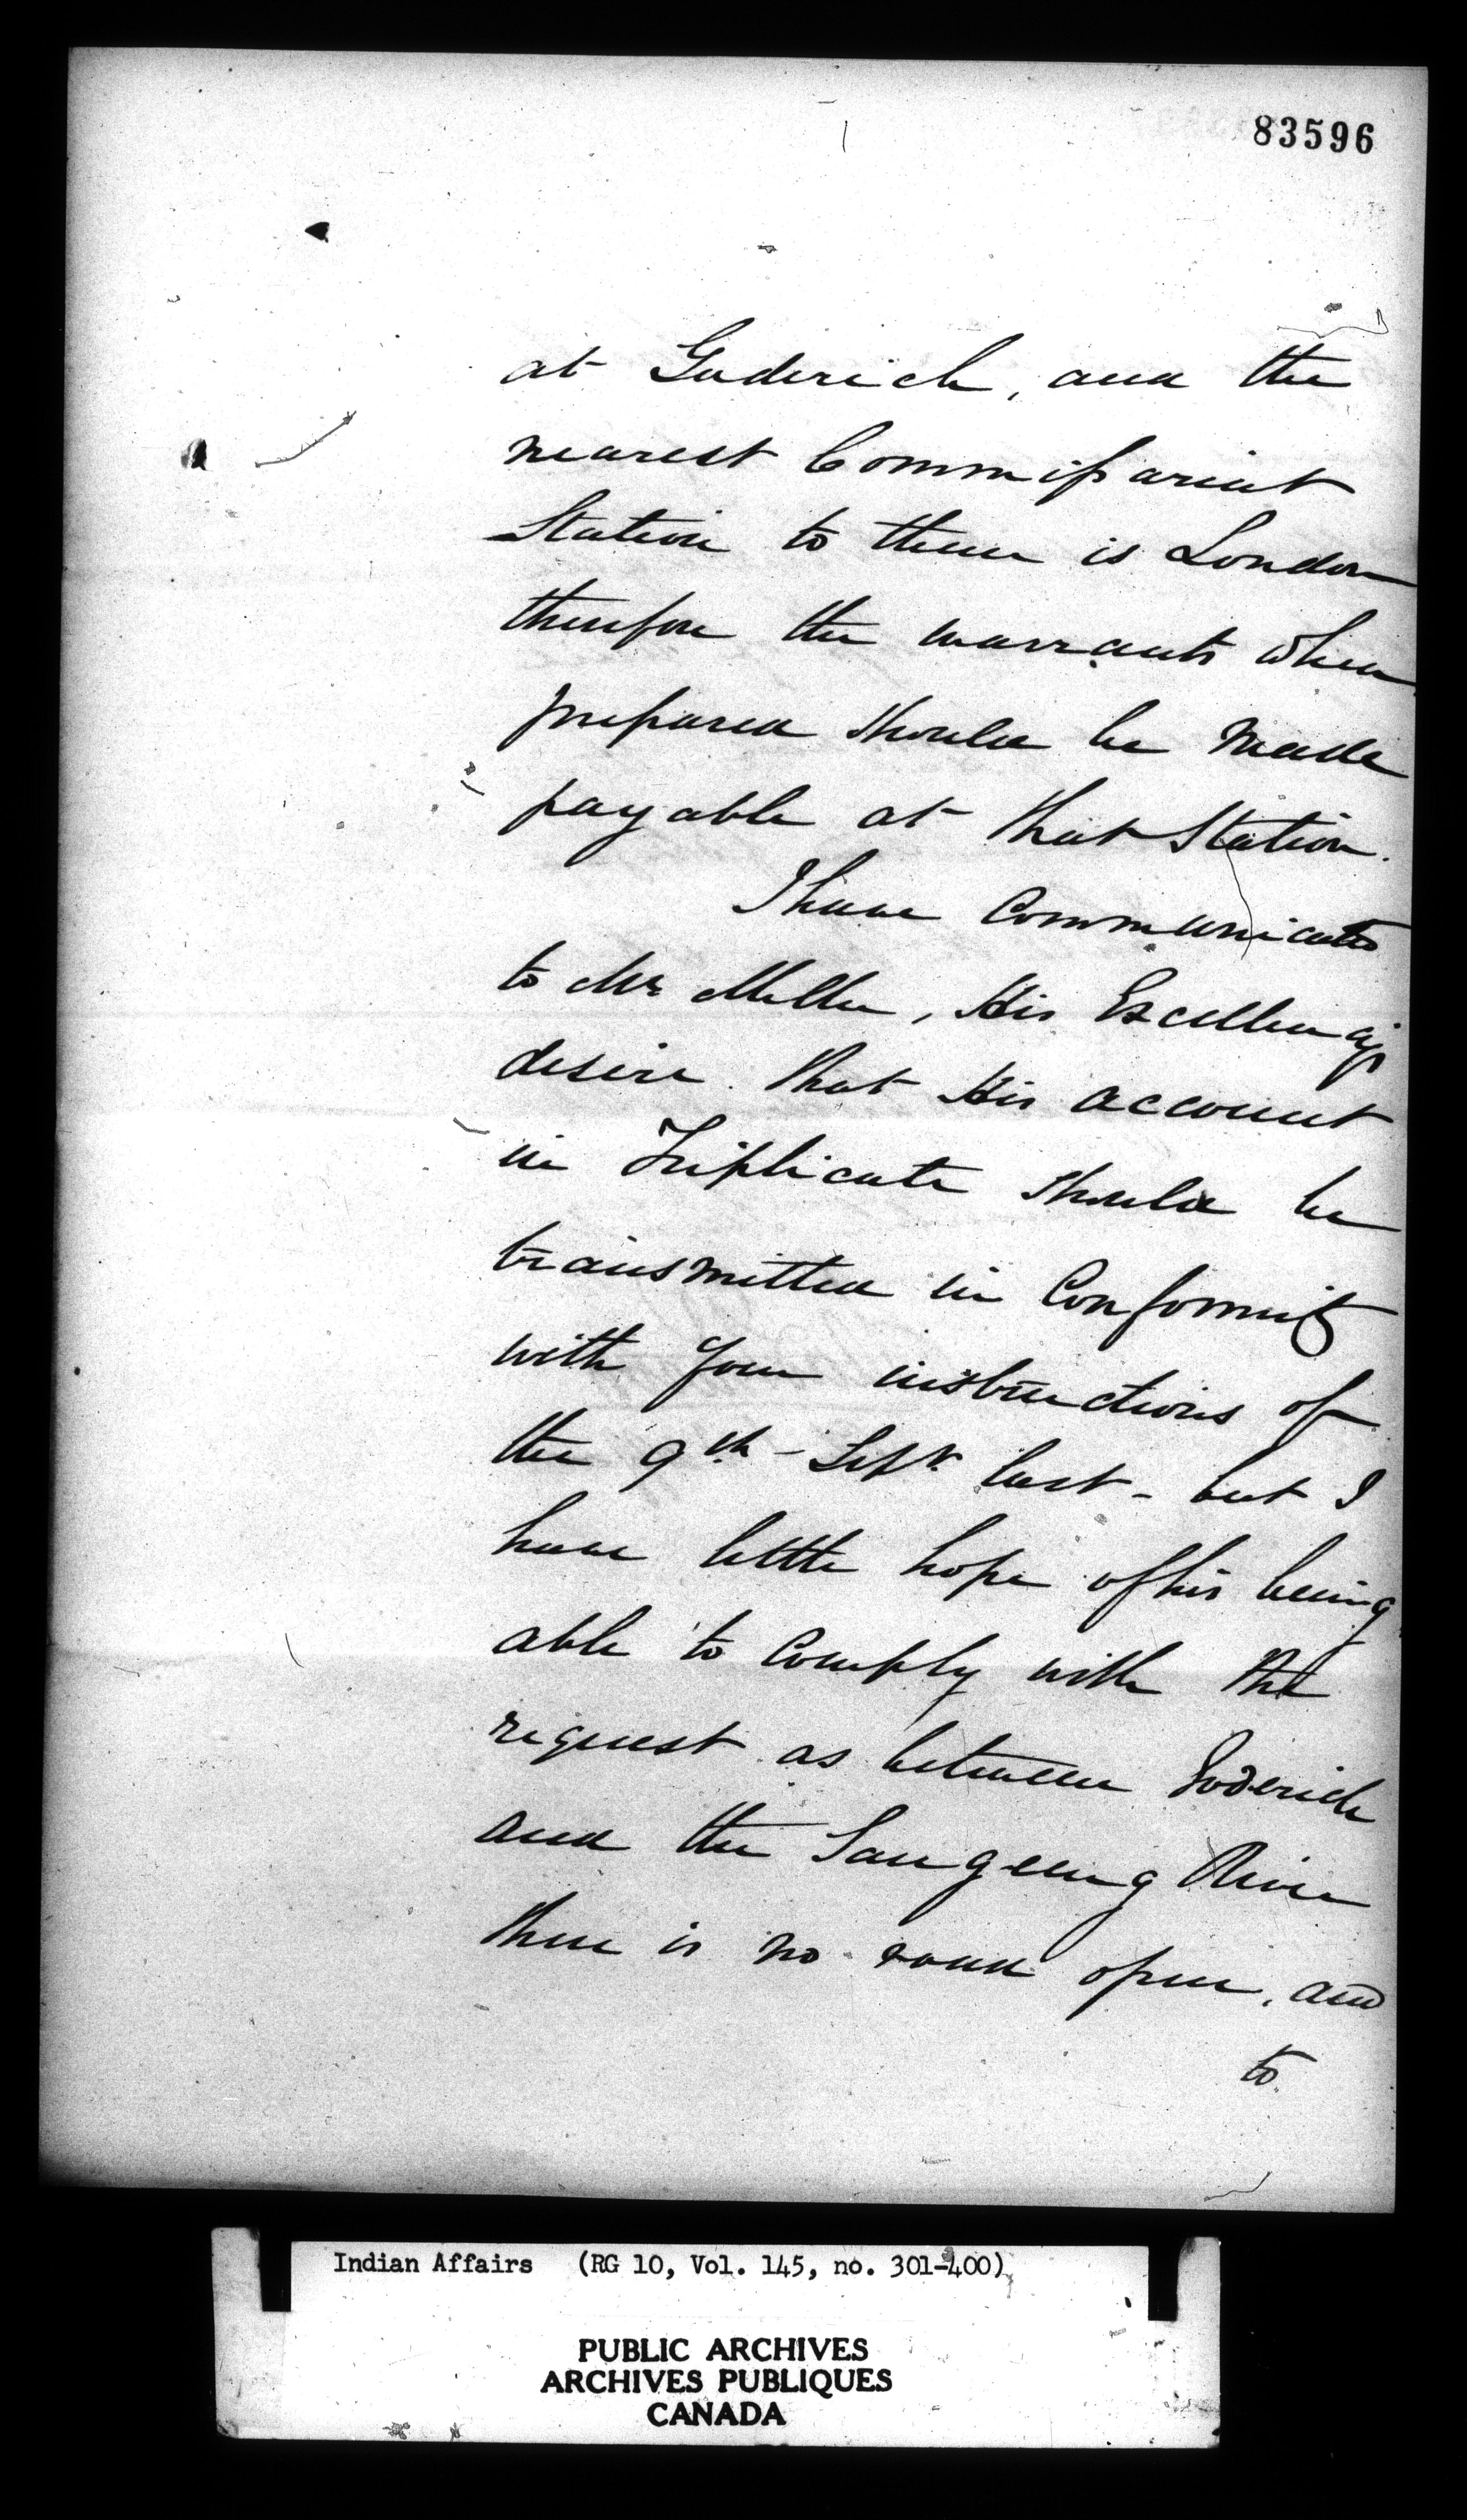 83596
at Goderich, and the
nearest Commissariat
Station to them is London
therefore the warrants when
prepared should be made
payable at that Station.
I have Communicated
to Mr , His Excellency's
desire that His account
in Triplicate should be
transmitted in Conformity
with your instructions of
the 9th - Sepr. last - but I
have little hope of his being
able to Comply with the
request as between Goderich
and the Saugeeng River
there is no road open, and
to
Indian Affairs (RG 10, Vol. 145, no. 301-400)
PUBLIC ARCHIVES
ARCHIVES PUBLIQUES
CANADA